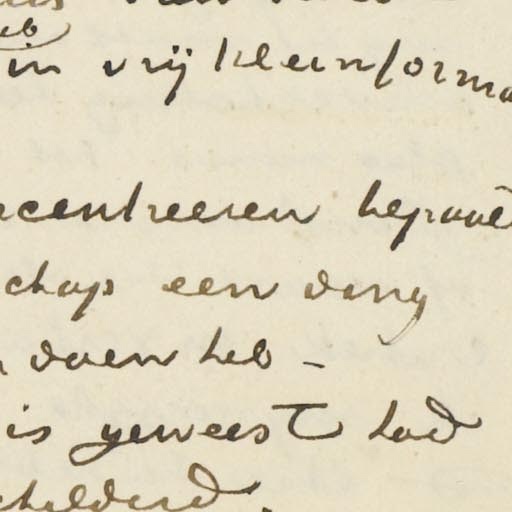 eb
in vrij klein forma
ncentreeren heprove
schap een ding
doen heb –
is geweest had
childerd.